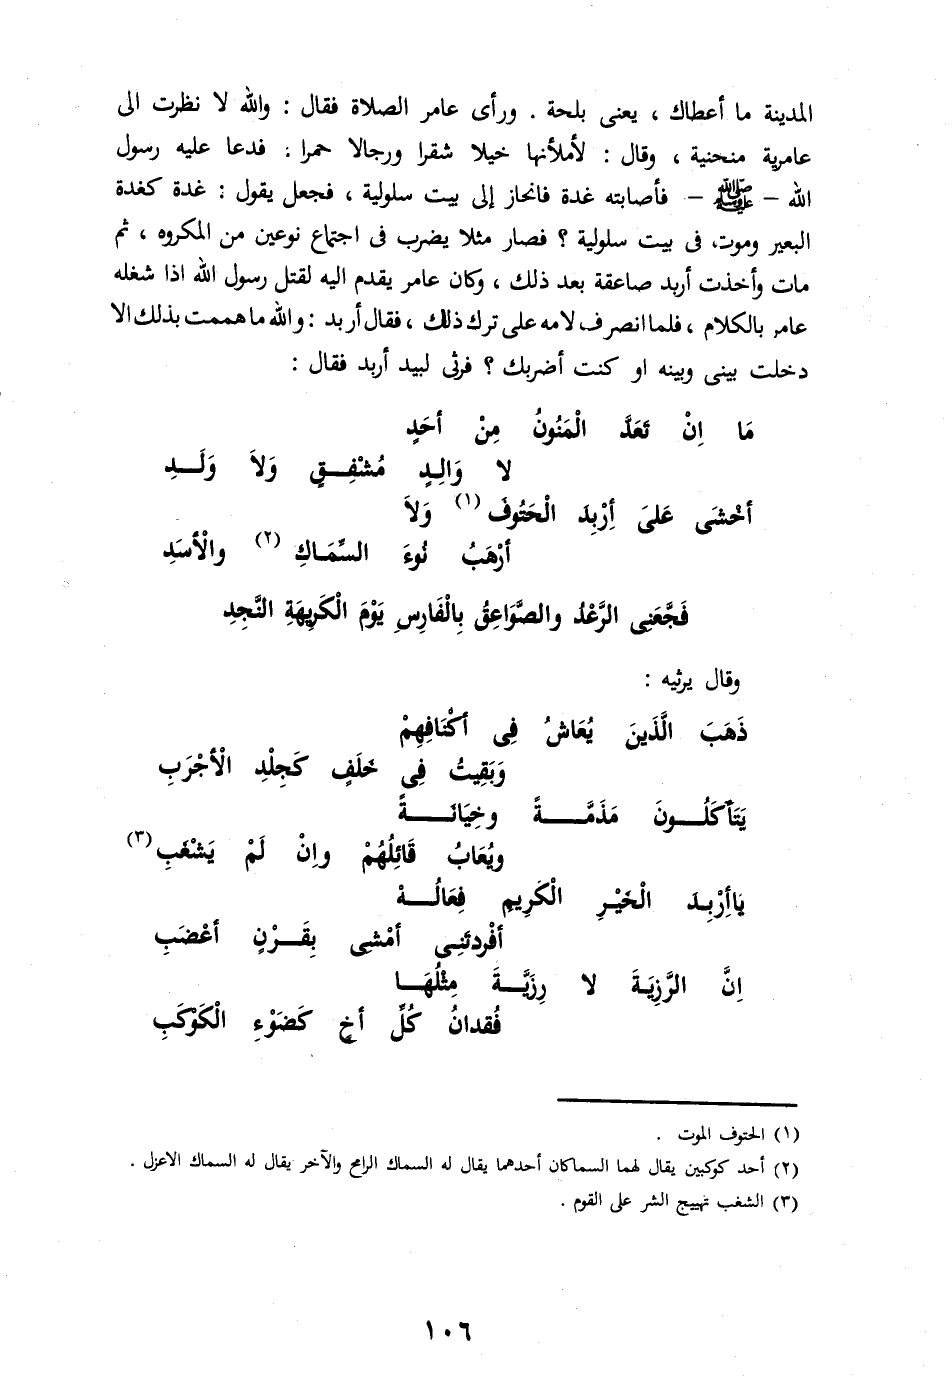 المدينة ما أعطاك ، يعنى بلحة . ورأى عامر الصلاة فقال : والله لا نظرت الى
عامرية منحنية ، وقال : لأملأنها خيلا شقرا ورجالا حمرا . فدعا عليه رسول
الله – ﷺ – فأصابته غدة فانحاز إلى بيت سلولية ، فجعل يقول : غدة كغدة
البعير وموت، فى بيت سلولية ؟ فصار مثلا يضرب فى اجتماع نوعين من المكروه ، ثم
مات وأخذت أربد صاعقة بعد ذلك ، وكان عامر يقدم اليه لقتل رسول الله اذا شغله
عامر بالكلام ، فلما انصرف لامه على ترك ذلك ، فقال أربد : والله ما هممت بذلك الا
دخلت بينى وبينه او كنت أضربك ؟ فرثى لبيد أربد فقال :
مَا اِنْ تَعَدَّ الْمَنُونُ مِنْ أحَدٍ
لا وَالِدٍ مُشْفِـــقٍ وَلاَ وَلَـــدِ
أخْشَى عَلىَ اِرْبِدَ الْحَتُوفَ (١) وَلاَ
أرْهَبُ نُوءَ السِّمَاكِ (٢) والْأسَدِ
فَجَّعَنِى الرَّعْدُ والصَّوَاعِقُ بِالْفَارِسِ يَوْمَ الْكَرِيهَةِ النَّجِدِ
وقال يرثيه :
ذَهَبَ الَّذَينَ يُعَاشُ فِى أكْنَافِهِمْ
وَبَقِيتُ فِى خَلَفٍ كَجِلْدِ الْأجْرَبِ
يَتَأكَلُـــونَ مَذَمَّـــةً وخِيَانَـــةً
ويُعَابُ قَائِلُهُمْ واِنْ لَمْ يَشْغَبِ (٣)
يَااِرْبِـدَ الْخَيْـرِ الْكَرِيمِ فِعَالُـــهْ
أفْردتَنِـى أمْشِى بِقَـــرْنٍ أعْضَبِ
اِنَّ الرَّزِيَـةَ لا رِزِيَّـــةَ مِثْلُهَـــا
فُقدانُ كُلِّ أخٍ كَضَوْءِ الْكَوْكَبِ
(١) الحتوف الموت .
(٢) أحد كوكبين يقال لهما السماكان أحدهما يقال له السماك الرامح والآخر يقال له السماك الاعزل .
(٣) الشغب تهييج الشر على القوم .
١٠٦